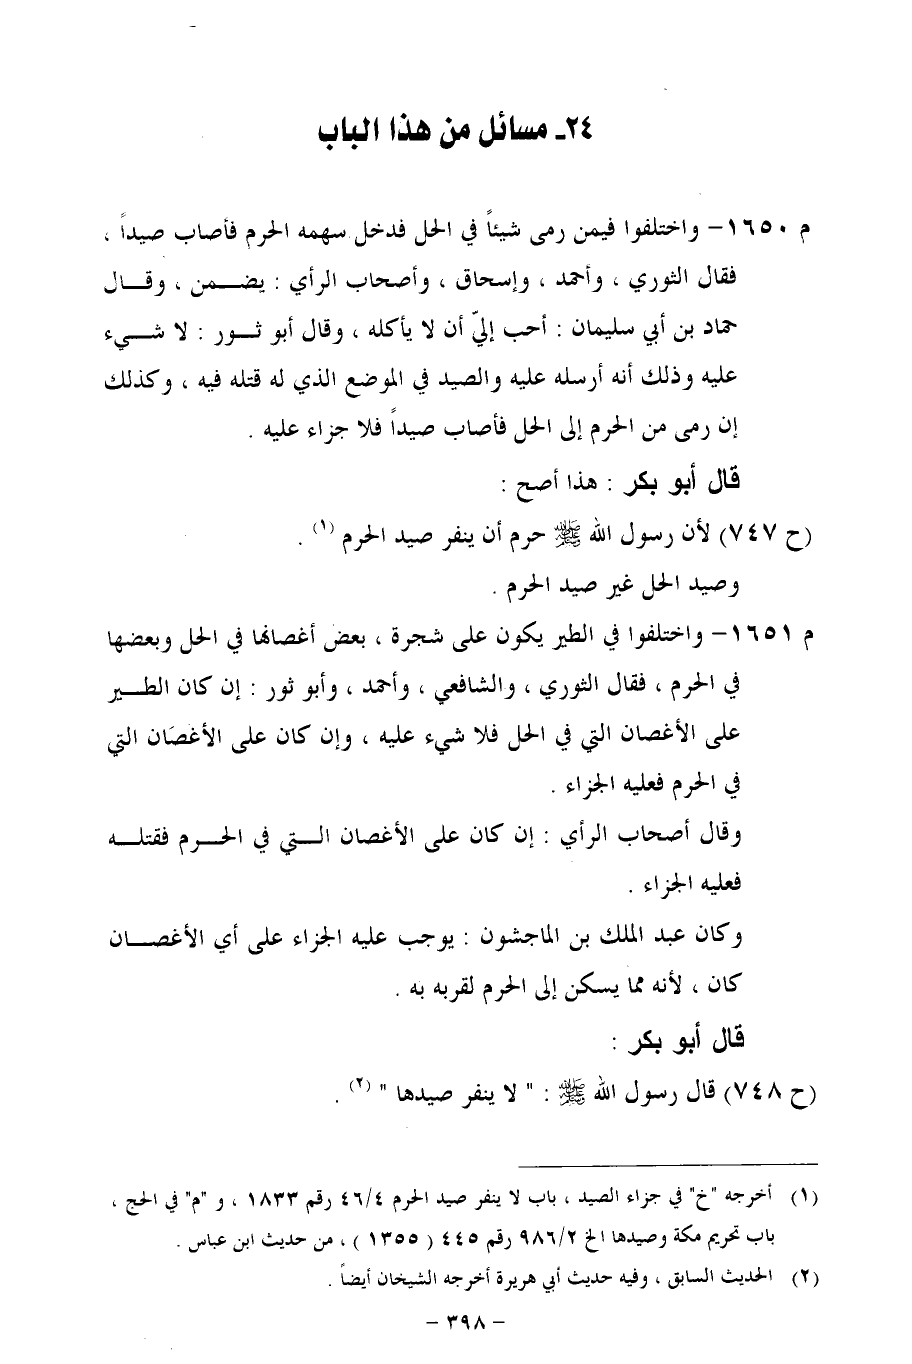 ٢٤ـ مسائل من هذا الباب
م ١٦٥٠– واختلفوا فيمن رمى شيئاً في الحل فدخل سهمه الحرم فأصاب صيداً ،
فقال الثوري ، وأحمد ، وإسحاق ، وأصحاب الرأي : يضـــمن ، وقـــال
حماد بن أبي سليمان : أحب إليّ أن لا يأكله ، وقال أبو ثـــور : لا شـــيء
عليه وذلك أنه أرسله عليه والصيد في الموضع الذي له قتله فيه ، وكذلك
إن رمى من الحرم إلى الحل فأصاب صيداً فلا جزاء عليه .
قال أبو بكر : هذا أصح :
(ح ٧٤٧) لأن رسول الله ﷺ حرم أن ينفر صيد الحرم (١) .
وصيد الحل غير صيد الحرم .
م ١٦٥١– واختلفوا في الطير يكون على شجرة ، بعض أغصانها في الحل وبعضها
في الحرم ، فقال الثوري ، والشافعي ، وأحمد ، وأبو ثور : إن كان الطـــير
على الأغصان التي في الحل فلا شيء عليه ، وإن كان على الأغصَان التي
في الحرم فعليه الجزاء .
وقال أصحاب الرأي : إن كان على الأغصان الـــتي في الحـــرم فقتلـــه
فعليه الجزاء .
وكان عبد الملك بن الماجشون : يوجب عليه الجزاء على أي الأغصـــان
كان ، لأنه مما يسكن إلى الحرم لقربه به .
قال أبو بكر :
(ح ٧٤٨) قال رسول الله ﷺ : " لا ينفر صيدها " (٢) .
(١) أخرجه "خ" في جزاء الصيد ، باب لا ينفر صيد الحرم ٤٦/٤ رقم ١٨٣٣ ، و "م" في الحج ،
باب تحريم مكة وصيدها الخ ٩٨٦/٢ رقم ٤٤٥ ( ١٣٥٥ ) ، من حديث ابن عباس .
(٢) الحديث السابق ، وفيه حديث أبي هريرة أخرجه الشيخان أيضاً .
– ٣٩٨ –